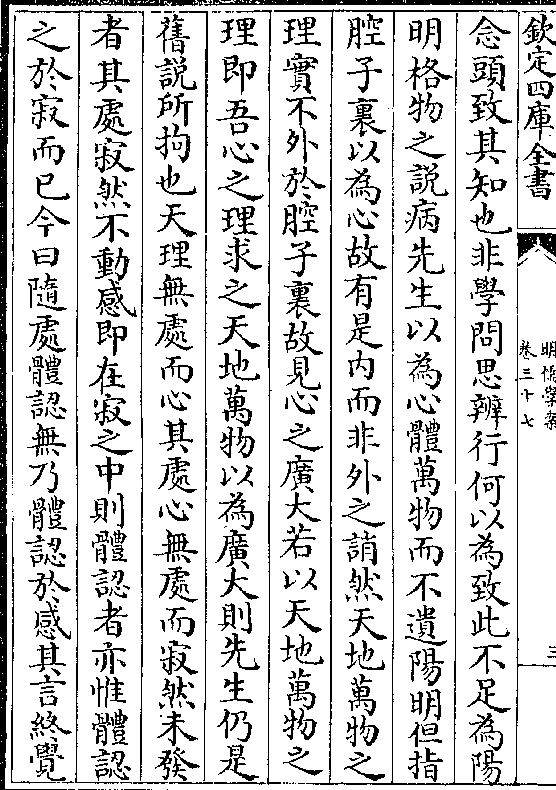 欽定四庫全書
明儒學案
卷三十七
三
念頭致其知也非學問思辨行何以為致此不足為陽
明格物之說病先生以為心體萬物而不遺陽明但指
腔子裏以為心故有是内而非外之誚然天地萬物之
理實不外於腔子裏故見心之廣大若以天地萬物之
理即吾心之理求之天地萬物以為廣大則先生仍是
舊説所拘也天理無處而心其處心無處而寂然未發
者其處寂然不動感即在寂之中則體認者亦惟體認
之於寂而已今曰隨處體認無乃體認於感其言終覺